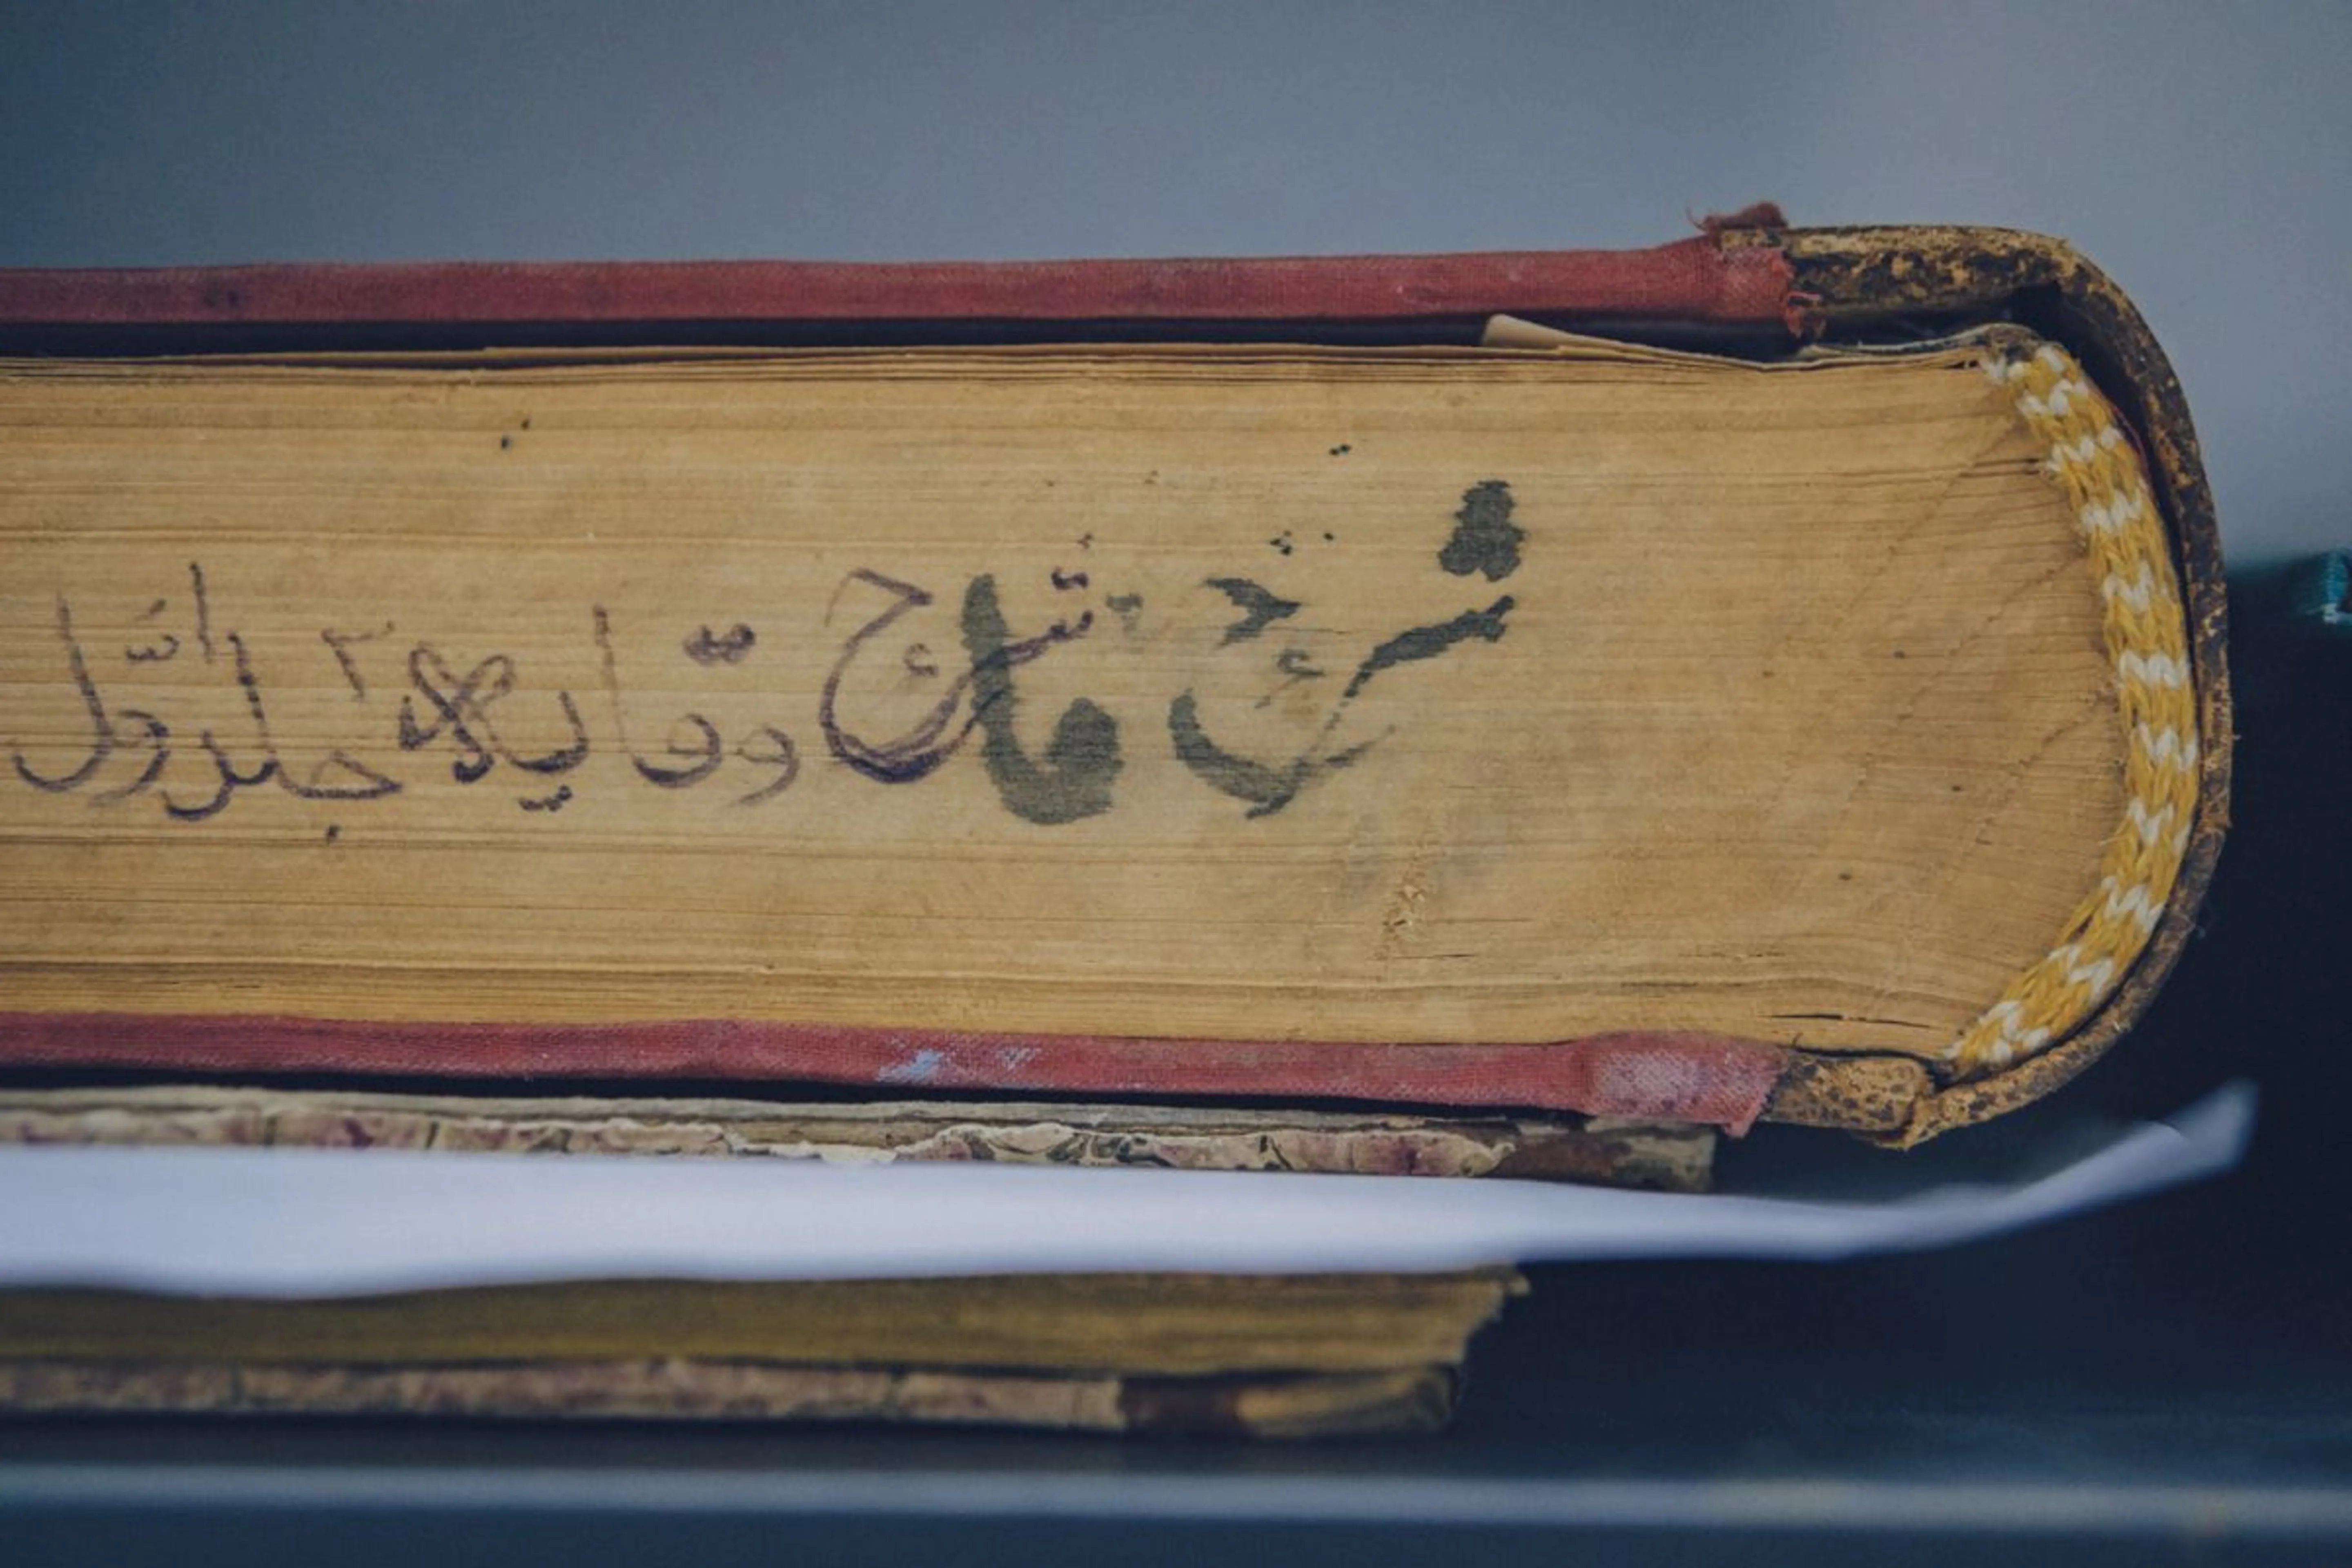 شرح شرح وقایه جلد اول